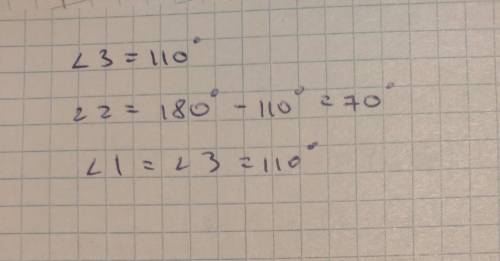 ∠3 = 110°
∠2 = 180° - 110° = 70°
∠1 = ∠3 = 110°